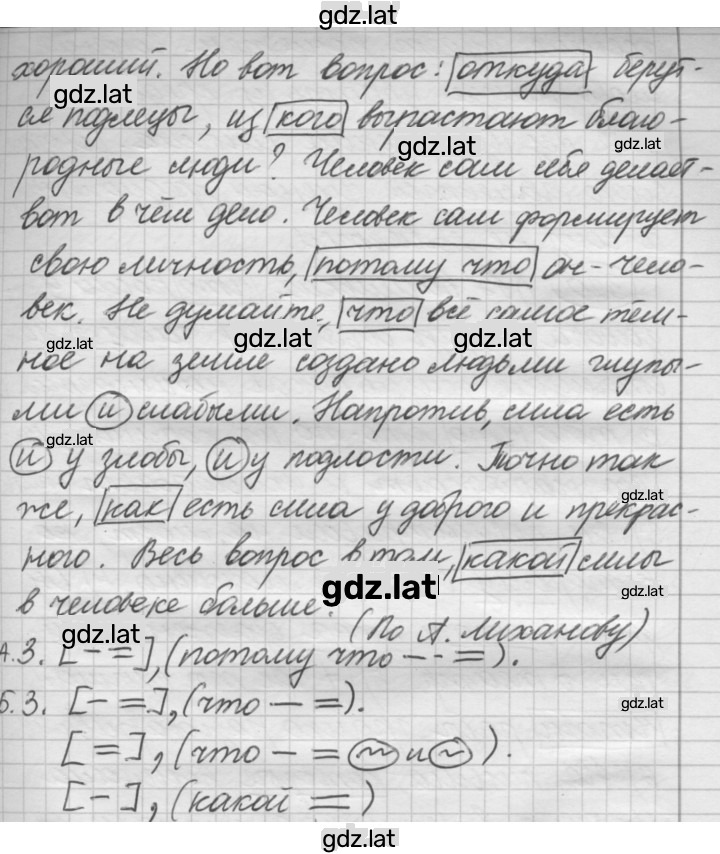 gdz.lat
хороший. Но вот вопрос: откуда берут-
gdz.lat
ся подлецы, из кого вырастают благо-
gdz.lat
gdz.lat
родные люди? Человек сам себя делает-
вот в чём дело. Человек сам формирует
свою личность, потому что он - чело-
век. Не думайте, что всё самое тём-
gdz.lat
gdz.lat
gdz.lat
ное на земле создано людьми глупы-
ми и слабыми. Напротив, сила есть
gdz.lat
и у злобы, и у подлости. Точно так
же, как есть сила у доброго и прекрас-
gdz.lat
ного. Весь вопрос в том, какой силы
gdz.lat
gdz.lat
в человеке больше.
(По А. Лиханову)
gdz.lat
А.3. [- =], (потому что — - =).
Б.3. [- =], (что — =).
gdz.lat
[=], (что — = ~ и ~).
[-], (какой =)
gdz.lat